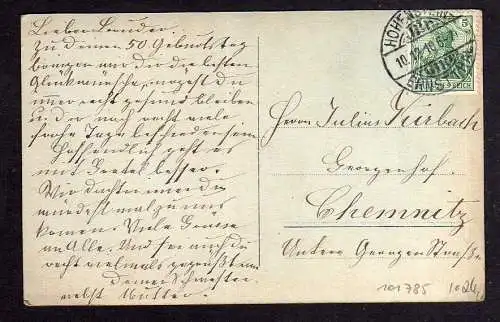 Lieber Bruder.
Zu deinen 50. Geburtstag
bringen wir dir die besten
Glückwünsche, mögest du
immer recht gesund bleiben
u. dir noch recht viele
frohe Tage beschieden sein
Hoffendlich geht es
mit Gretel besser.
Wir dachten immer du
würdest mal zu uns
kommen. Viele Grüsse
an Alle. Und sei auch du
recht vielmals gegrüßt von
deiner Schwester
nebst Mutter.
HOHENSTEIN
10.12.10.
ERNSTTHAL
5
REICH
Herrn Julius Kürbach
Georgenhof.
Chemnitz
Untere Georgen Straße
101785